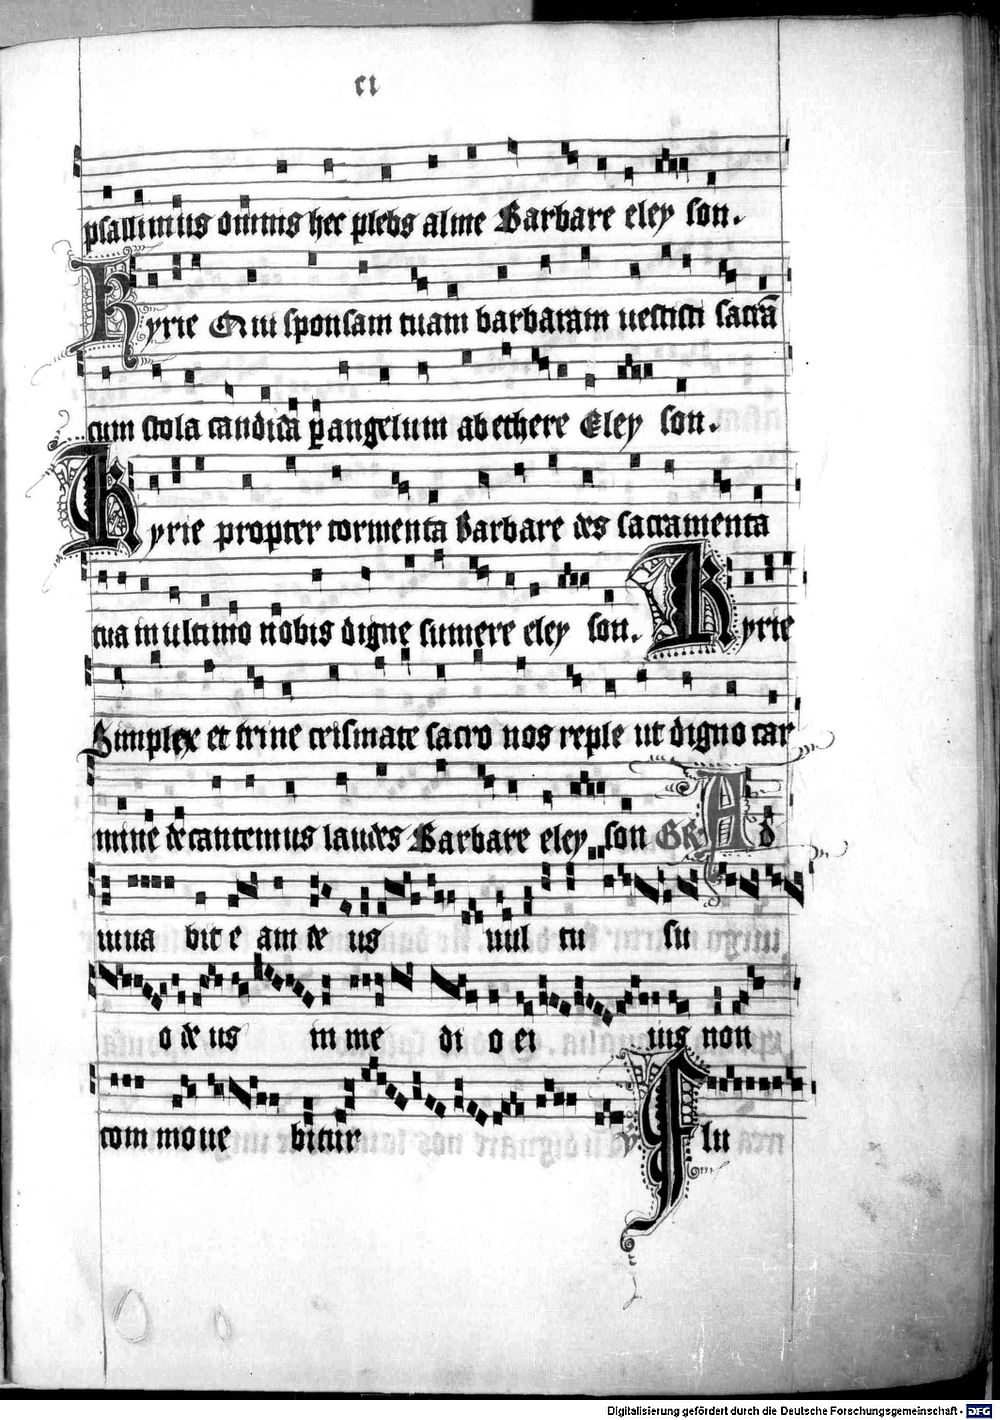 ci
psallimus omnis hec plebs alme Barbare eley son.
Kyrie Qui sponsam tuam barbaram uestisti sacrā
cum stola candida ꝑ angelum ab ethere Eley son.
Kyrie propter tormenta Barbare des sacramenta
tua in ultimo nobis digne sumere eley son. Kyrie
Simplex et trine crismate sacro nos reple ut digno car
mine decantemus laudes Barbare eley son GR Ad
iuua bit e am de us uul tu su
o de us in me di o ei ius non
com moue bitur Flu
Digitalisierung gefördert durch die Deutsche Forschungsgemeinschaft - DFG